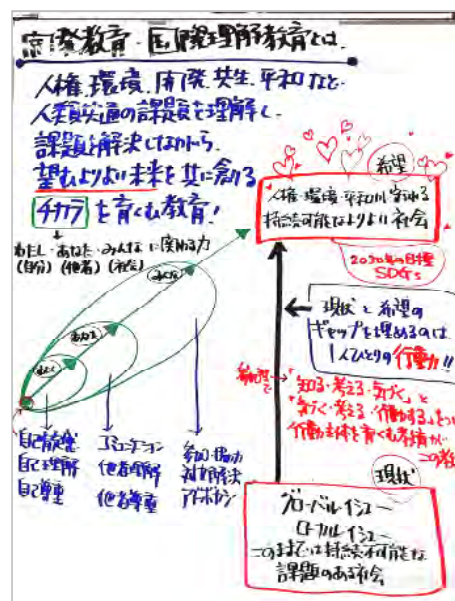 国際教育・国際理解教育とは、
人権、環境、開発、共生、平和など、
人類共通の課題を理解し、
課題を解決しながら、
望むよりよい未来を共に創る
チカラを育くむ教育!
わたし・あなた・みんなに関わる力
(自分)(他者)(社会)
みんな
あなた
わたし
自己
自己理解
自己尊重
コミュニケーション
他者理解
他者尊重
参加・協力
対立解決
希望
人権・環境・平和が守られる
持続可能なよりよい社会
2030年の目標
SDGs
現状と希望の
ギャップを埋めるのは
1人ひとりの行動!!
「知る・考える・気づく」と
「気づく・考える・行動する」を
行動主体を育くむ教育が
現状
グローバルイシュー
ローカルイシュー
このままでは持続不可能な
課題のある社会